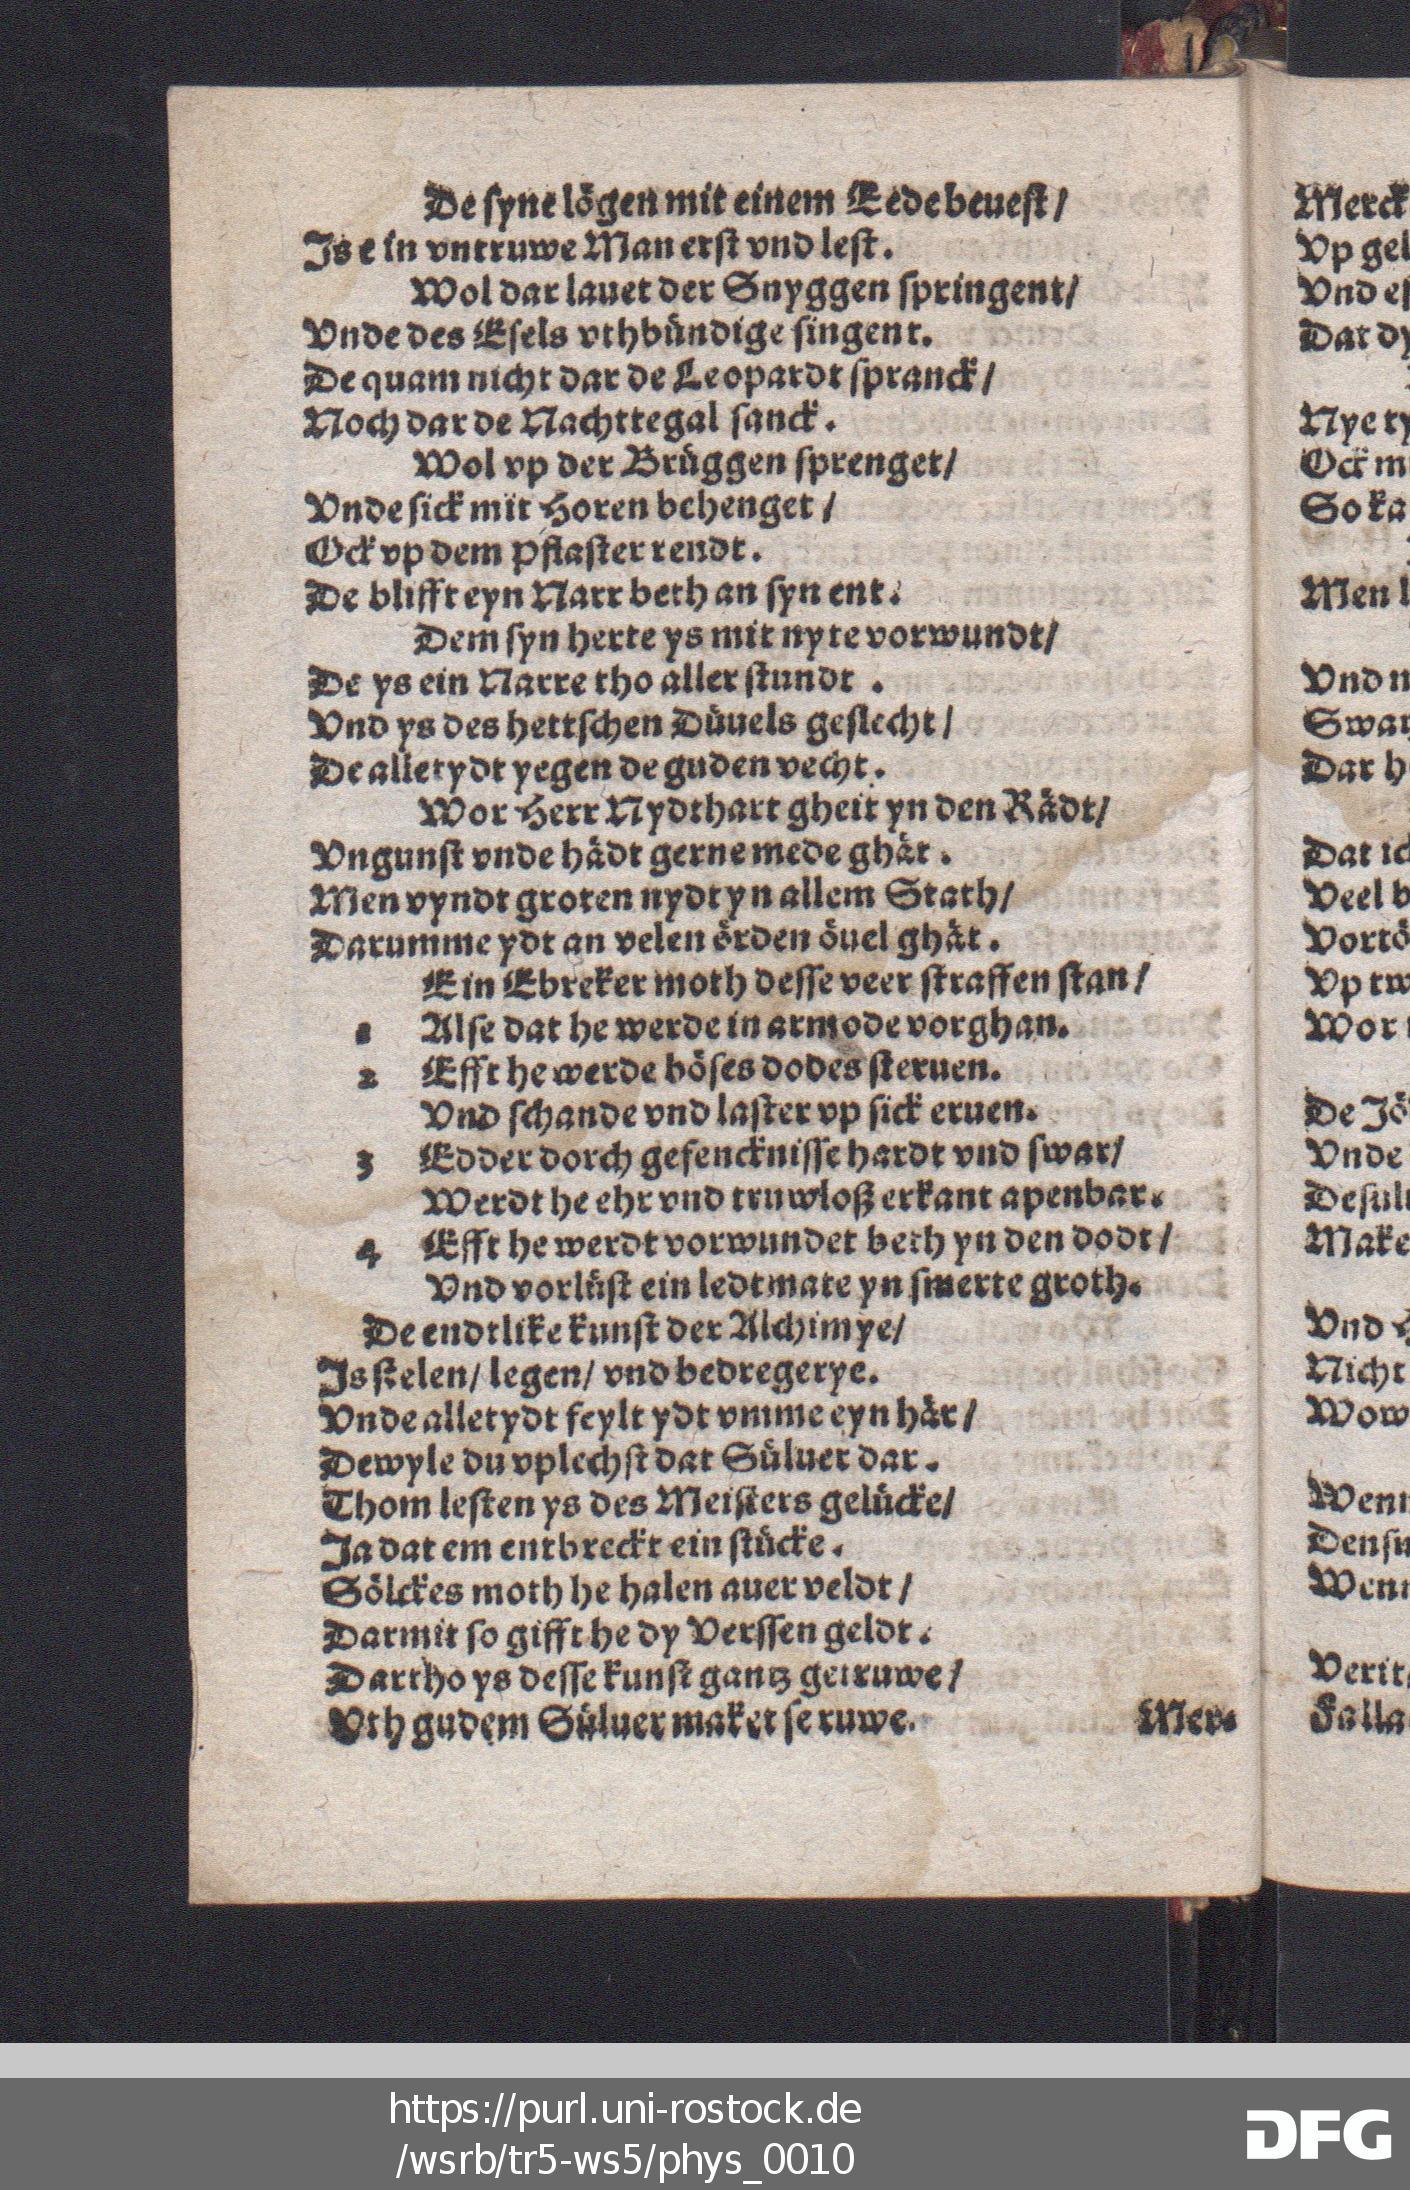 De ſyne lögen mit einem Eede beueſt /
Js ein vntruwe Man erſt vnd leſt.
Wol dar lauet der Snyggen ſpringent /
Vnde des Eſels vthbündige ſingent.
De quam nicht dar de Leopardt ſpranck /
Noch dar de Nachttegal ſanck.
Wol vp der Brüggen ſprenget /
Vnde ſick mit Horen behenget /
Ock vp dem Pflaſter rendt.
De blifft eyn Narr beth an ſyn ent.
Dem ſyn herte ys mit nyte vorwundt /
De ys ein Narre tho aller ſtundt.
Vnd ys des hettſchen Düuels geſlecht /
De alletydt yegen de guden vecht.
Wor Herr Nydthart gheit yn den Rädt /
Vngunſt vnde hädt gerne mede ghät.
Men vyndt groten nydt yn allem Stath /
Darumme ydt an velen örden öuel ghät.
Ein Ebreker moth deſſe veer ſtraffen ſtan /
1 Alſe dat he werde in armode vorghan.
2 Efft he werde böſes dodes ſteruen.
Vnd ſchande vnd laſter vp ſick eruen.
3 Edder dorch gefenckniſſe hardt vnd ſwar /
Werdt he ehr vnd truwloß erkant apenbar.
4 Efft he werdt vorwundet beth yn den dodt /
Vnd vorlüſt ein ledtmate yn ſmerte groth.
De endtlike kunſt der Alchimye /
Js ſtelen / legen / vnd bedregerye.
Vnde alletydt feylt ydt vmme eyn här /
Dewyle du vplechſt dat Süluer dar.
Thom leſten ys des Meiſters gelücke /
Ja dat em entbreckt ein ſtücke.
Sölckes moth he halen auer veldt /
Darmit ſo gifft he dy Verſſen geldt.
Dartho ys deſſe kunſt gantz getruwe /
Vth gudem Süluer maket ſe ruwe.
Mer⸗
Merck
Vp gel
Vnd eſ
Dat dy
Nye ty
Ock m
So ka
Men l
Vnd n
Swar
Dar h
Dat ick
Veel b
Vortö
Vp tw
Wor
De Jö
Vnde
Desulu
Make
Vnd H
Nicht
Wow
Wenn
Denſu
Wenn
Verit
Falla
https://purl.uni-rostock.de
/wsrb/tr5-ws5/phys_0010
DFG